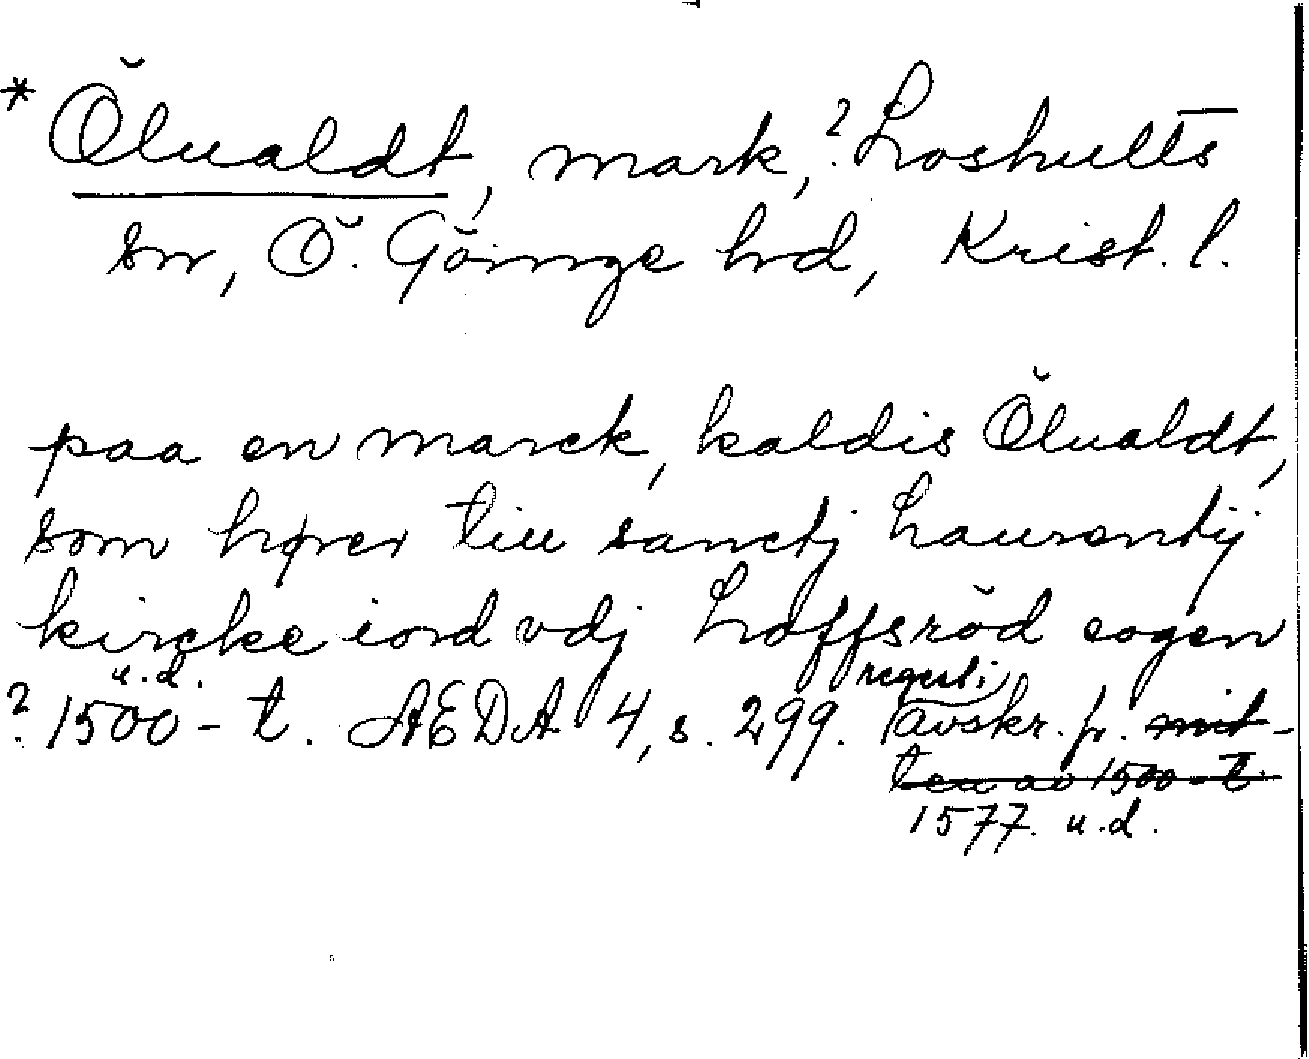 * Ölualdt, mark, ? Loshults
sn, Ö. Göinge hd, Krist. l.
paa en marck, kaldis Ölualdt,
som hører till sanctj Laurentij
kircke iord vdj Loffsröd sogen
? 1500-t. u.d. ÆDA 4, s. 299. regest i avskr. fr. mit-
ten av 1500-t.
1577. u.d.